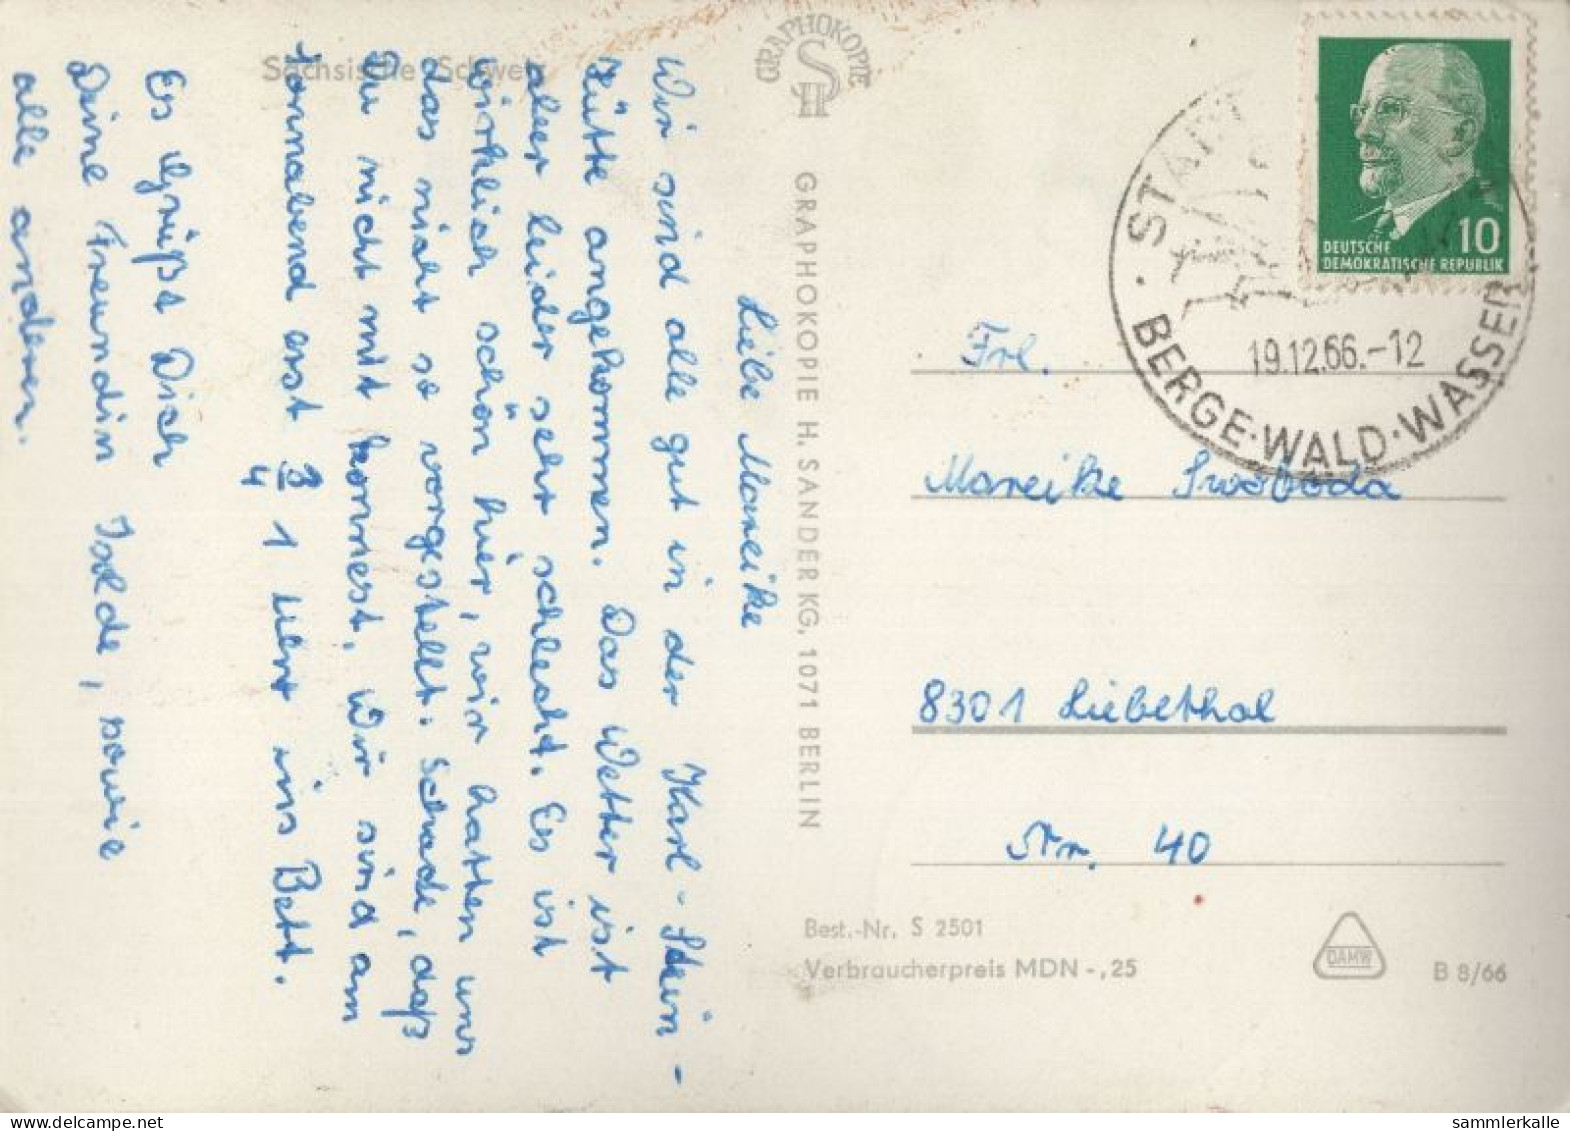 Sächsische Schweiz
Liebe Mareike
Wir sind alle gut in der Karl-Stein-
Hütte angekommen. Das Wetter ist
aber leider sehr schlecht. Es ist
wirklich schön hier, wir hatten uns
das nicht so vorgestellt. Schade, daß
Du nicht mit kommest. Wir sind am
Sonnabend erst 3/4 1 Uhr ins Bett.
Es grüßt Dich
Deine Freundin Isolde, sowie
alle anderen.
GRAPHOKOPIE
GRAPHOKOPIE H. SANDER KG, 1071 BERLIN
10
DEUTSCHE
DEMOKRATISCHE REPUBLIK
19.12.66.-12
BERGE·WALD·WASSER
Frl.
Mareike Swoboda
8301 Liebethal
Nr. 40
Best.-Nr. S 2501
Verbraucherpreis MDN -,25
DAMW
B 8/66
sammlerkalle